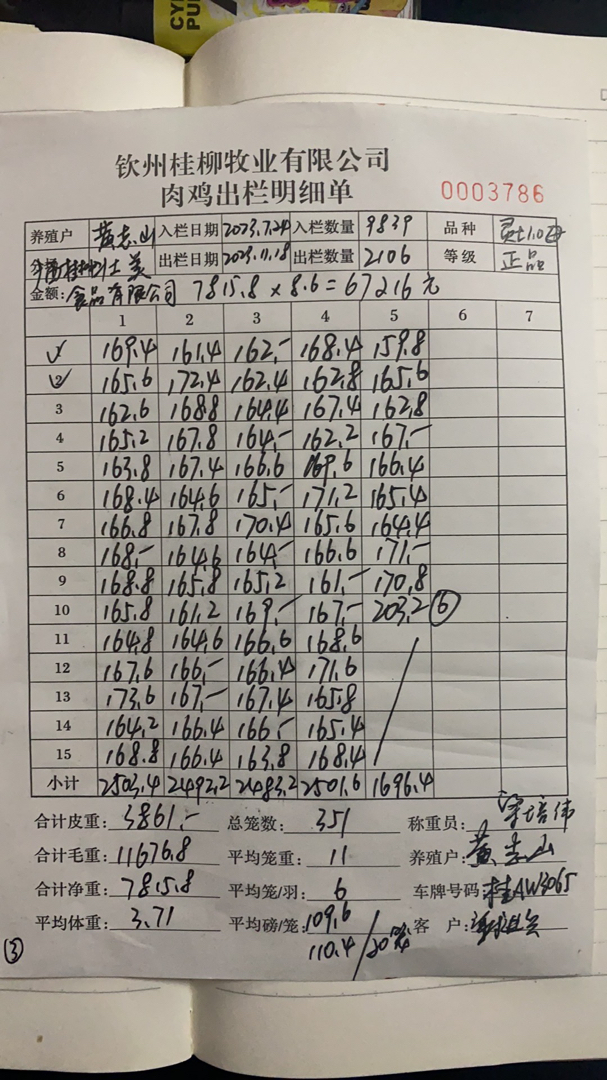 钦州桂柳牧业有限公司
肉鸡出栏明细单 0003786
养殖户 黄志山 入栏日期 2023.7.24 入栏数量 9839 品种
出栏日期 2023.11.18 出栏数量 2106 等级 正品
金额: 食品有限公司 7815.8 × 8.6 = 67216 元
1 2 3 4 5 6 7
1 169.4 161.4 162.- 168.4 159.8
2 165.6 172.4 162.4 162.8 165.6
3 162.6 168.8 164.4 167.4 162.8
4 165.2 167.8 164.- 162.2 167.-
5 163.8 167.4 166.6 169.6 166.4
6 168.4 164.6 165.- 171.2 165.4
7 166.8 167.8 170.4 165.6 164.4
8 168.- 164.6 164.- 166.6 171.-
9 168.8 165.8 165.2 161.- 170.8
10 165.8 161.2 169.- 167.- 203.2 ⑥
11 164.8 164.6 166.6 168.6
12 167.6 166.- 166.4 171.6
13 173.6 167.- 167.4 165.8
14 164.2 166.4 166.- 165.4
15 168.8 166.4 163.8 168.4
小计 2503.4 2492.2 2483.2 2501.6 1696.4
合计皮重: 3861.- 总笼数: 351 称重员: 梁培伟
合计毛重: 11676.8 平均笼重: 11 养殖户: 黄志山
合计净重: 7815.8 平均笼/羽: 6 车牌号码: 桂AW3065
平均体重: 3.71 平均磅/笼: 109.6 客 户:
110.4 /20
③